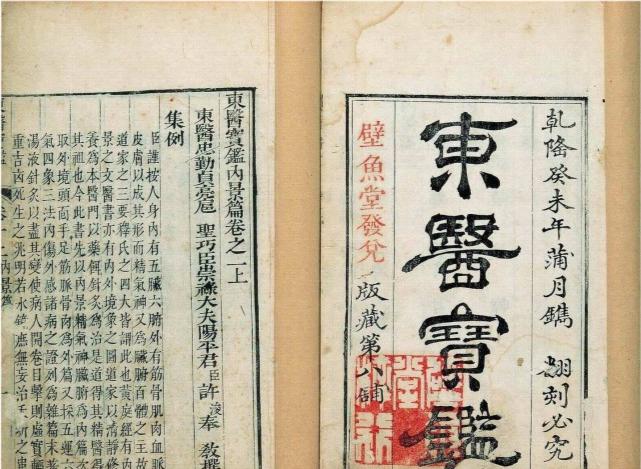 乾隆癸未年蒲月鐫 翻刻必究
東醫寶鑑
壁魚堂發兌
版藏第八鋪
東醫寶鑑內景篇卷之一上
東醫忠勤貞亮扈 聖功臣崇祿大夫陽平君臣許浚奉 教撰
集例
臣謹按人身內有五臟六腑外有筋骨肌肉血脈
皮膚以成其形而精氣神又為臟腑百體之主故
道家之三要釋氏之四大皆謂此也黃庭經有內
景之文醫書亦有內外境象之圖道家以清靜修
養為本醫門以藥餌針灸為治是道得其精醫得
其粗也今此書先以內景精氣神臟腑為內篇次
取外境頭面手足筋脈骨肉為外篇又採五運六
氣四象三法內傷外感諸病之證列為雜篇末著
湯液針灸以盡其變使病人開卷目擊則虛實輕
重吉凶死生之兆明若水鏡庶無妄治夭折之患